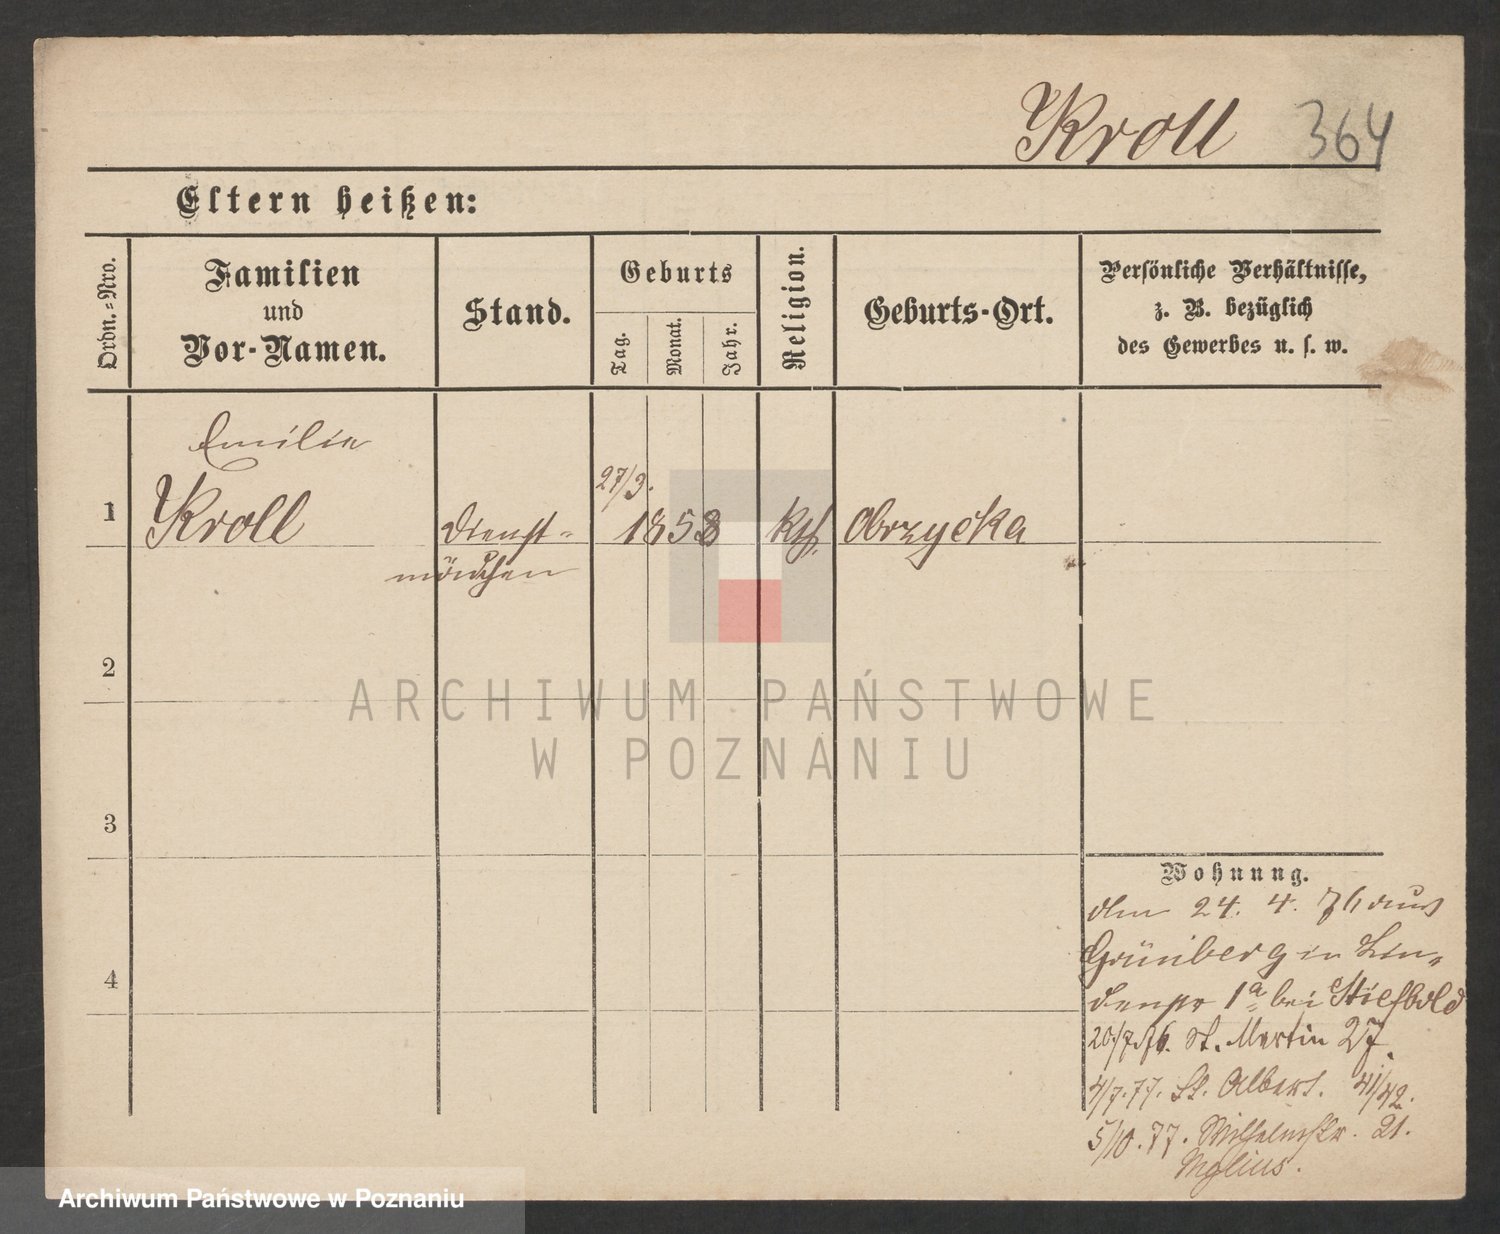 Kroll 364
Eltern heißen:
Ordn.-Nro.
Familien
und
Vor-Namen.
Stand.
Geburts
Tag.
Monat.
Jahr.
Religion.
Geburts-Ort.
Persönliche Verhältnisse,
z. B. bezüglich
des Gewerbes u. s. w.
Emilie
1 Kroll Dienst- 27/3. 1858 kth. Obrzycka
mädchen
2
3
4
ARCHIWUM PAŃSTWOWE
W POZNANIU
Wohnung.
den 24. 4. 76 aus
Grünberg in Lin-
denstr 1a bei
20/7.76. St. Martin 27.
4/7.77. St. Albert. 41/42.
5/10.77. Wilhelmstr. 21.
Mylius.
Archiwum Państwowe w Poznaniu